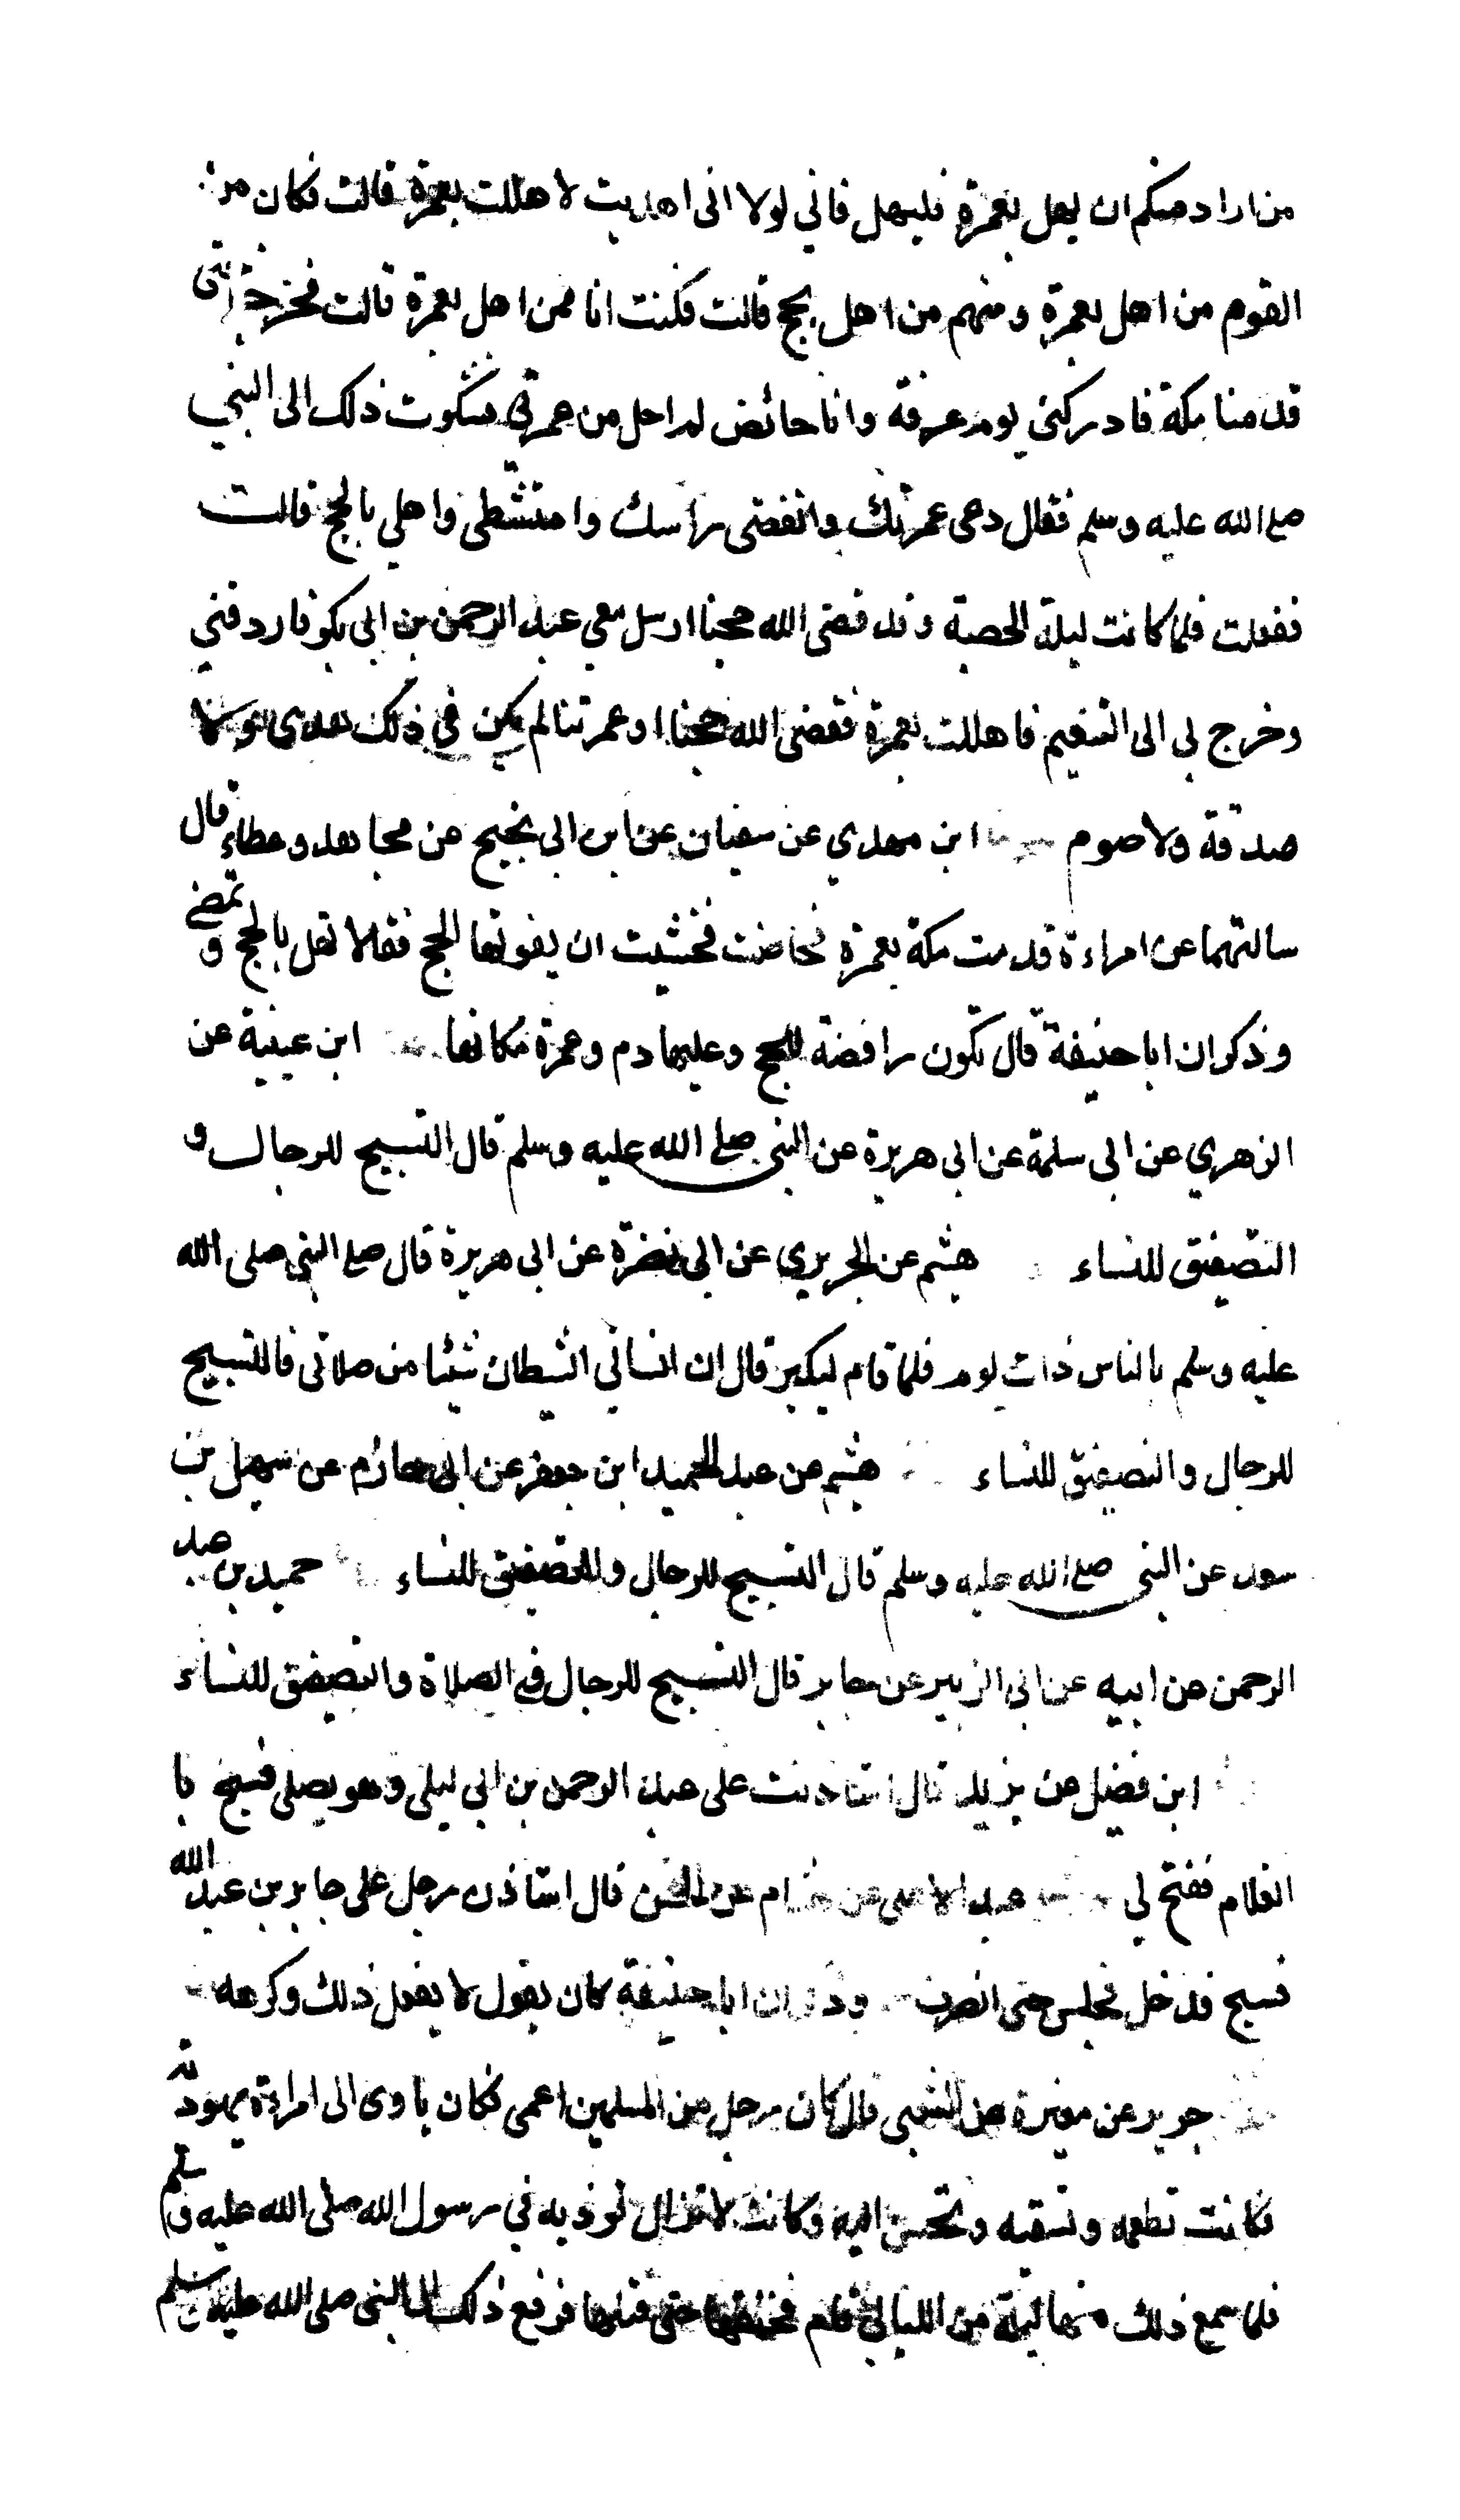 من اراد منكم ان يهل بعمرة فليهل فاني لولا انى اهديت لا هللت بعمرة قالت فكان من
القوم من اهل بعمرة ومنهم من اهل بحج قالت فكنت انا ممن اهل بعمرة قالت فخرجنا حتى
قدمنا مكة فادركنى يوم عرفة وانا حائض لم احل من عمرتى فشكوت ذلك الى النبي
صلى الله عليه وسلم فقال دعى عمرتك وانقضى راسك وامتشطى واهلي بالحج قالت
ففعلت فلما كانت ليلة الحصبة وقد قضى الله حجنا ارسل معي عبد الرحمن بن ابى بكر فاردفني
وخرج بى الى التنعيم فاهللت بعمرة فقضى الله حجنا وعمرتنا لم يكن في ذلك هدى ولا
صدقة ولا صوم ابن مهدي عن سفيان عن ابن ابى نجيح عن مجاهد وعطاء قال
سالتهما عن امراءة قدمت مكة بعمرة فحاضت فخشيت ان يفوتها الحج فقالا تهل بالحج و تمضى
وذكر ان ابا حنيفة قال تكون رافضة للحج وعليها دم وعمرة مكانها ابن عيينة عن
الزهري عن ابى سلمة عن ابى هريرة عن النبى صلى الله عليه وسلم قال التسبيح للرجال و
التصفيق للنساء هشيم عن الجريري عن ابى نضرة عن ابى هريرة قال صلى النبى صلى الله
عليه وسلم بالناس ذات يوم فلما قام ليكبر قال ان انسانى الشيطان شيئا من صلاتى فالتسبيح
للرجال والتصفيق للنساء هشيم عن عبد الحميد ابن جعفر عن ابى حازم عن سهل بن
سعد عن النبى صلى الله عليه وسلم قال التسبيح للرجال وللتصفيق للنساء حميد بن عبد
الرحمن عن ابيه عن ابى الزبير عن جابر قال التسبيح للرجال في الصلاة والتصفيق للنساء
ابن فضيل عن يزيد قال استاذنت على عبد الرحمن بن ابى ليلى وهو يصلى فسبح با
الغلام ففتح لى عبد الاعلى عن هشام عن الحسن قال استاذن رجل على جابر بن عبد الله
فسبح فدخل فجلس حتى انصرف وذكر ان ابا حنيفة كان يقول لا يفعل ذلك وكرهه
جرير عن مغيرة عن الشعبى قال كان رجل من المسلمين اعمى فكان ياوى الى امراءة يهودية
فكانت تطعمه وتسقيه وتحسن اليه وكانت لا تزال توذيه في رسول الله صلى الله عليه وسلم
فلما سمع ذلك منها ليلة من الليالى قام فخنقها حتى قتلها فرفع ذلك الى النبى صلى الله عليه وسلم